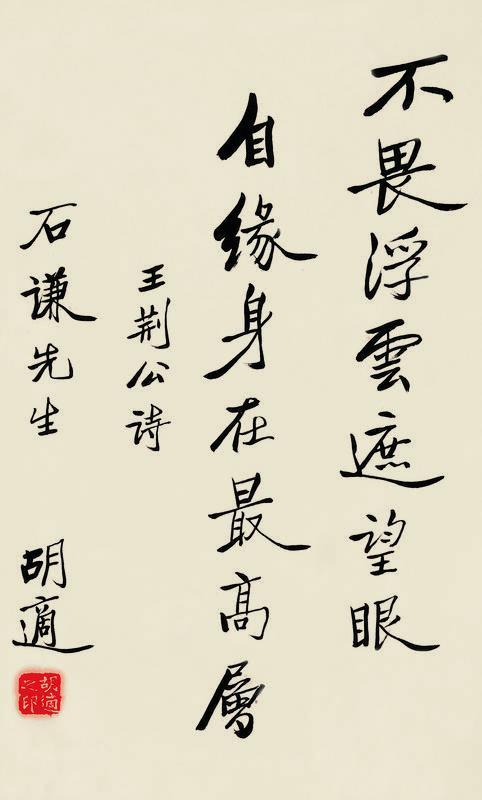 不畏浮雲遮望眼
自緣身在最高層
王荆公诗
石谦先生
胡適
胡適之印